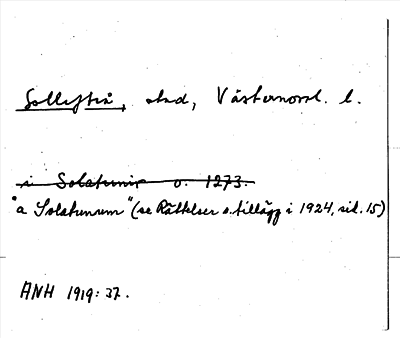 Sollefteå, stad, Västernorrl. l.
i Solatunir o. 1273.
"a Solatunum" (se Rättelser o. tillägg i 1924, sid. 15)
ANH 1919: 37.